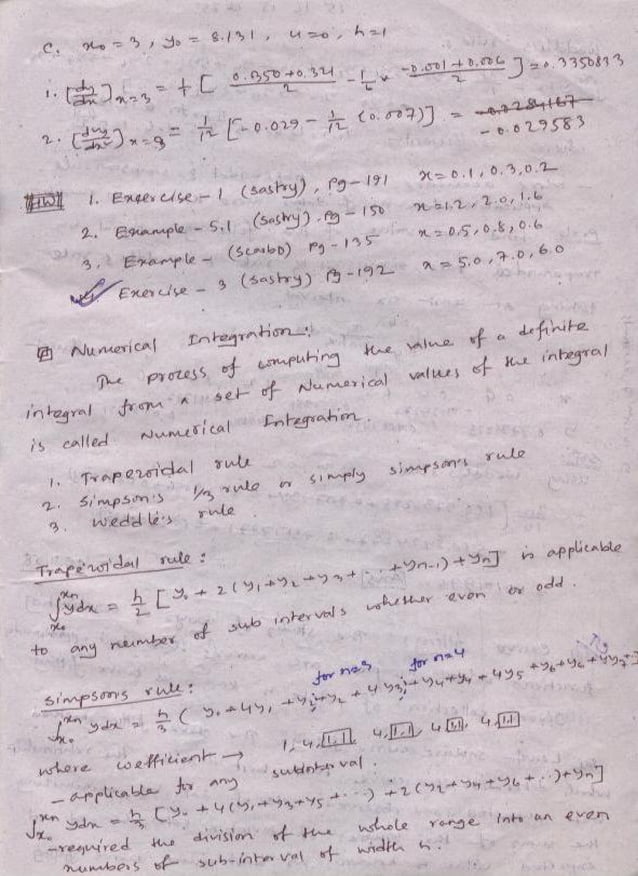 C. x₀ = 3, y₀ = 8.131, u=0, h=1
1. [dy/dx] x=3 = 1/1 [ (0.350+0.321)/2 - 1/6 × (-0.001+0.006)/2 ] = 0.3350833
2. [d²y/dx²] x=3 = 1/1² [-0.029 - 1/12 (0.007)] =
-0.029583
HW 1. Exercise - 1 (Sastry), Pg-191 x=0.1, 0.3, 0.2
2. Example - 5.1 (Sastry). Pg - 150 x=1.2, 2.0, 1.6
3. Example - (Scarbo) Pg - 135 x=0.5, 0.8, 0.6
Exercise - 3 (Sastry) Pg -192 x = 5.0, 7.0, 6.0
Numerical Integration:
The process of computing the value of a definite
integral from a set of Numerical values of the integral
is called Numerical Integration.
1. Trapezoidal rule
2. Simpson's 1/3 rule or simply simpson's rule
3. Weddle's rule
Trapezoidal rule:
∫ydx = h/2 [y₀ + 2(y₁+y₂+y₃+...+yn-1)+yn] is applicable
to any number of sub intervals whether even or odd.
for n=3 for n=4
simpsons rule:
∫ydx = h/3 (y₀+4y₁+y₂+y₂+4y₃+y₄+y₄+4y₅+y₆+y₆+4y₇+
where coefficient → 1, 4, 1,1, 4, 1,1, 4, 1,1, 4, 1,1
- applicable for any subinterval.
∫ydx = h/3 [y₀+4(y₁+y₃+y₅+...)+2(y₂+y₄+y₆+..)+yn]
-required the division of the whole range into an even
numbers of sub-interval of width h.